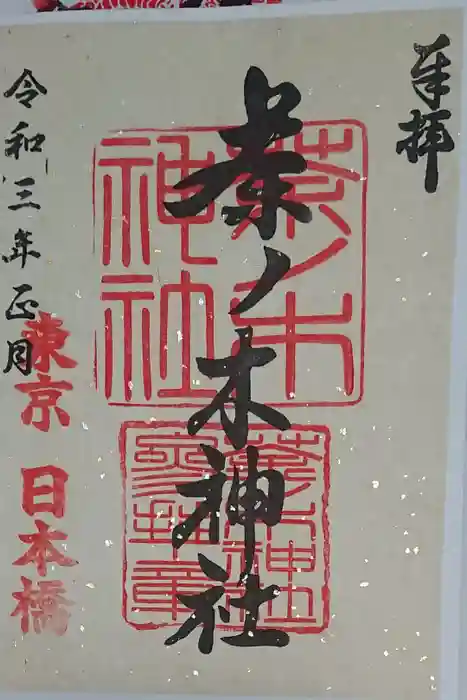 奉拝
茶ノ木神社
茶ノ木
神社
茶ノ木神社
参拝章
令和三年正月
東京
日本橋